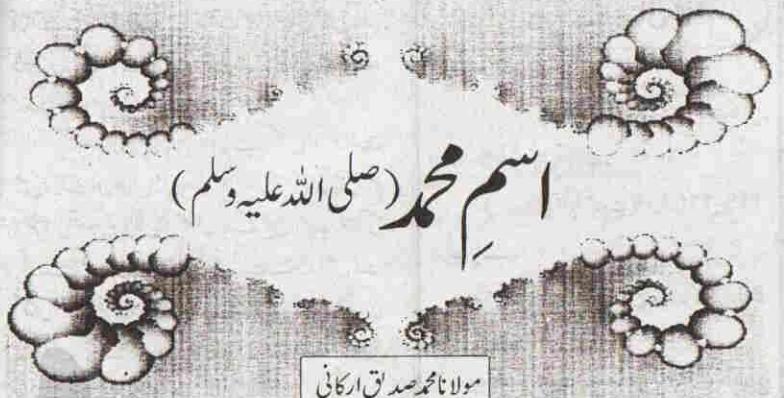 اسمِ محمد (صلی اللہ علیہ وسلم)
مولانا محمد صدیق ارکانی